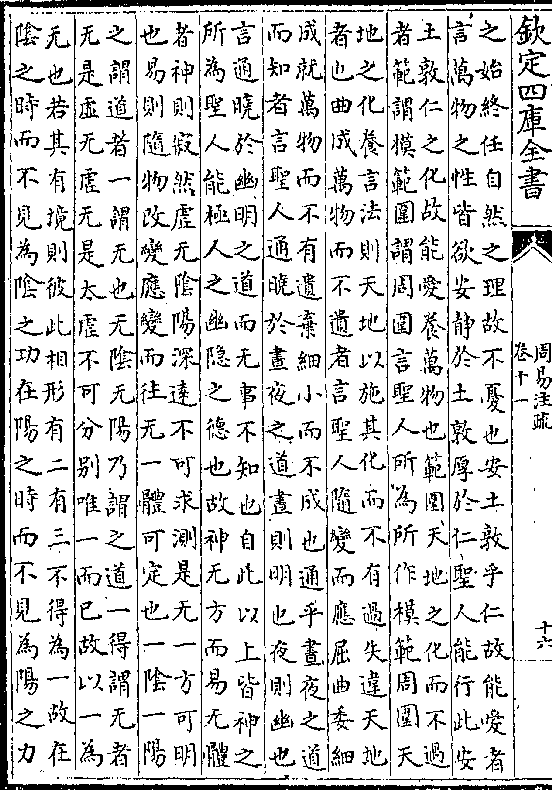 欽定四庫全書
周易注疏
卷十一
十六
之始終任自然之理故不憂也安土敦乎仁故能愛者
言萬物之性皆欲安静於土敦厚於仁聖人能行此安
土敦仁之化故能愛養萬物也範圍天地之化而不過
者範謂模範圍謂周圍言聖人所為所作模範周圍天
地之化養言法則天地以施其化而不有過失違天地
者也曲成萬物而不遺者言聖人隨變而應屈曲委細
成就萬物而不有遺棄細小而不成也通乎晝夜之道
而知者言聖人通曉於晝夜之道晝則明也夜則幽也
言通曉於幽明之道而无事不知也自此以上皆神之
所為聖人能極人之幽隐之德也故神无方而易无體
者神則寂然虚无陰陽深逺不可求測是无一方可明
也易則隨物改變應變而往无一體可定也一陰一陽
之謂道者一謂无也无陰无陽乃謂之道一得謂无者
无是虚无虚无是太虚不可分别唯一而已故以一為
无也若其有境則彼此相形有二有三不得為一故在
陰之時而不見為陰之功在陽之時而不見為陽之力